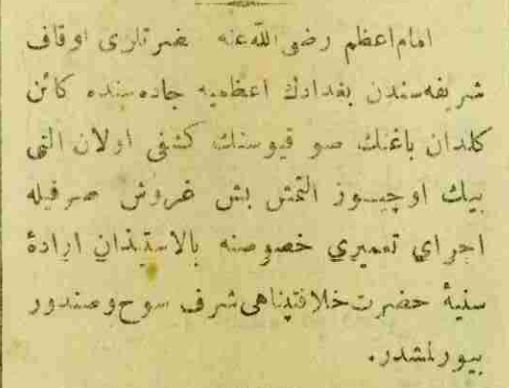 امام اعظم رضی الله عنه حضرتلری اوقاف
شریفه‌سندن بغدادك اعظمیه جاده‌سنده كائن
كلدان باغنك صو قیوسنك كشفی اولان التی
بیك اوچیوز التمش بش غروش صرفیله
اجرای تعمیری خصوصنه بالاستیذان ارادهٔ
سنیهٔ حضرت خلافتپناهی شرف سوح وصدور
بیورلمشدر.